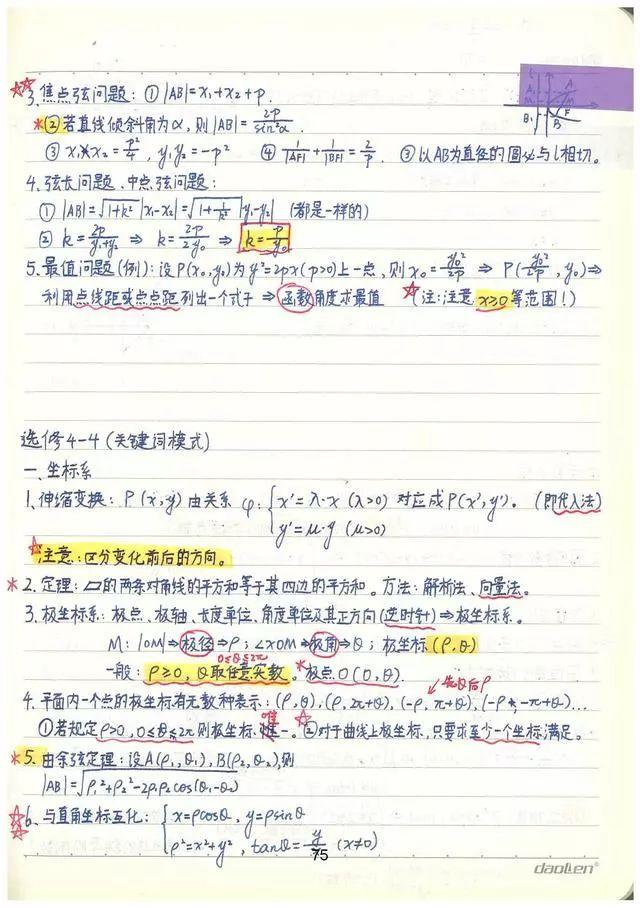 3. 焦点弦问题：① |AB|=x₁+x₂+p.
② 若直线倾斜角为α，则 |AB|=2p/sin²α.
③ x₁x₂=p²/4，y₁y₂=-p² ④ 1/|AF|+1/|BF|=2/p. ⑤ 以AB为直径的圆必与l相切。
4. 弦长问题、中点弦问题：
① |AB|=√(1+k²)|x₁-x₂|=√(1+1/k²)|y₁-y₂| (都是一样的)
② k=2p/(y₁+y₂) ⇒ k=2p/2y₀ ⇒ k=p/y₀
5. 最值问题(例)：设P(x₀,y₀)为y²=2px(p>0)上一点，则x₀=y₀²/2p ⇒ P(y₀²/2p, y₀)⇒
利用点线距或点点距列出一个式子 ⇒ 函数角度求最值 (注：注意x≥0等范围！)
选修4-4(关键词模式)
一、坐标系
1. 伸缩变换：P(x,y)由关系 φ：{x'=λ·x (λ>0) 对应成P(x',y')。(即代入法)
y'=μ·y (μ>0)
注意：区分变化前后的方向。
2. 定理：▱的两条对角线的平方和等于其四边的平方和。方法：解析法、向量法。
3. 极坐标系：极点、极轴、长度单位、角度单位及其正方向(逆时针)⇒极坐标系。
M：|OM|⇒极径⇒ρ；∠xOM⇒极角⇒θ；极坐标(ρ,θ)
0≤θ≤2π
一般：ρ≥0，θ取任意实数。 极点O(0,θ).
先θ后ρ
4. 平面内一个点的极坐标有无数种表示：(ρ,θ),(ρ,2π+θ),(-ρ,π+θ),(-ρ,-π+θ)...
① 若规定ρ>0，0≤θ≤2π则极坐标唯一。②对于曲线上极坐标，只要求至少一个坐标满足。
5. 由余弦定理：设A(ρ₁,θ₁)，B(ρ₂,θ₂)，则
|AB|=√(ρ₁²+ρ₂²-2ρ₁ρ₂cos(θ₁-θ₂))
6. 与直角坐标互化：{x=ρcosθ，y=ρsinθ
ρ²=x²+y²，tanθ=y/x (x≠0)
75
daolien®